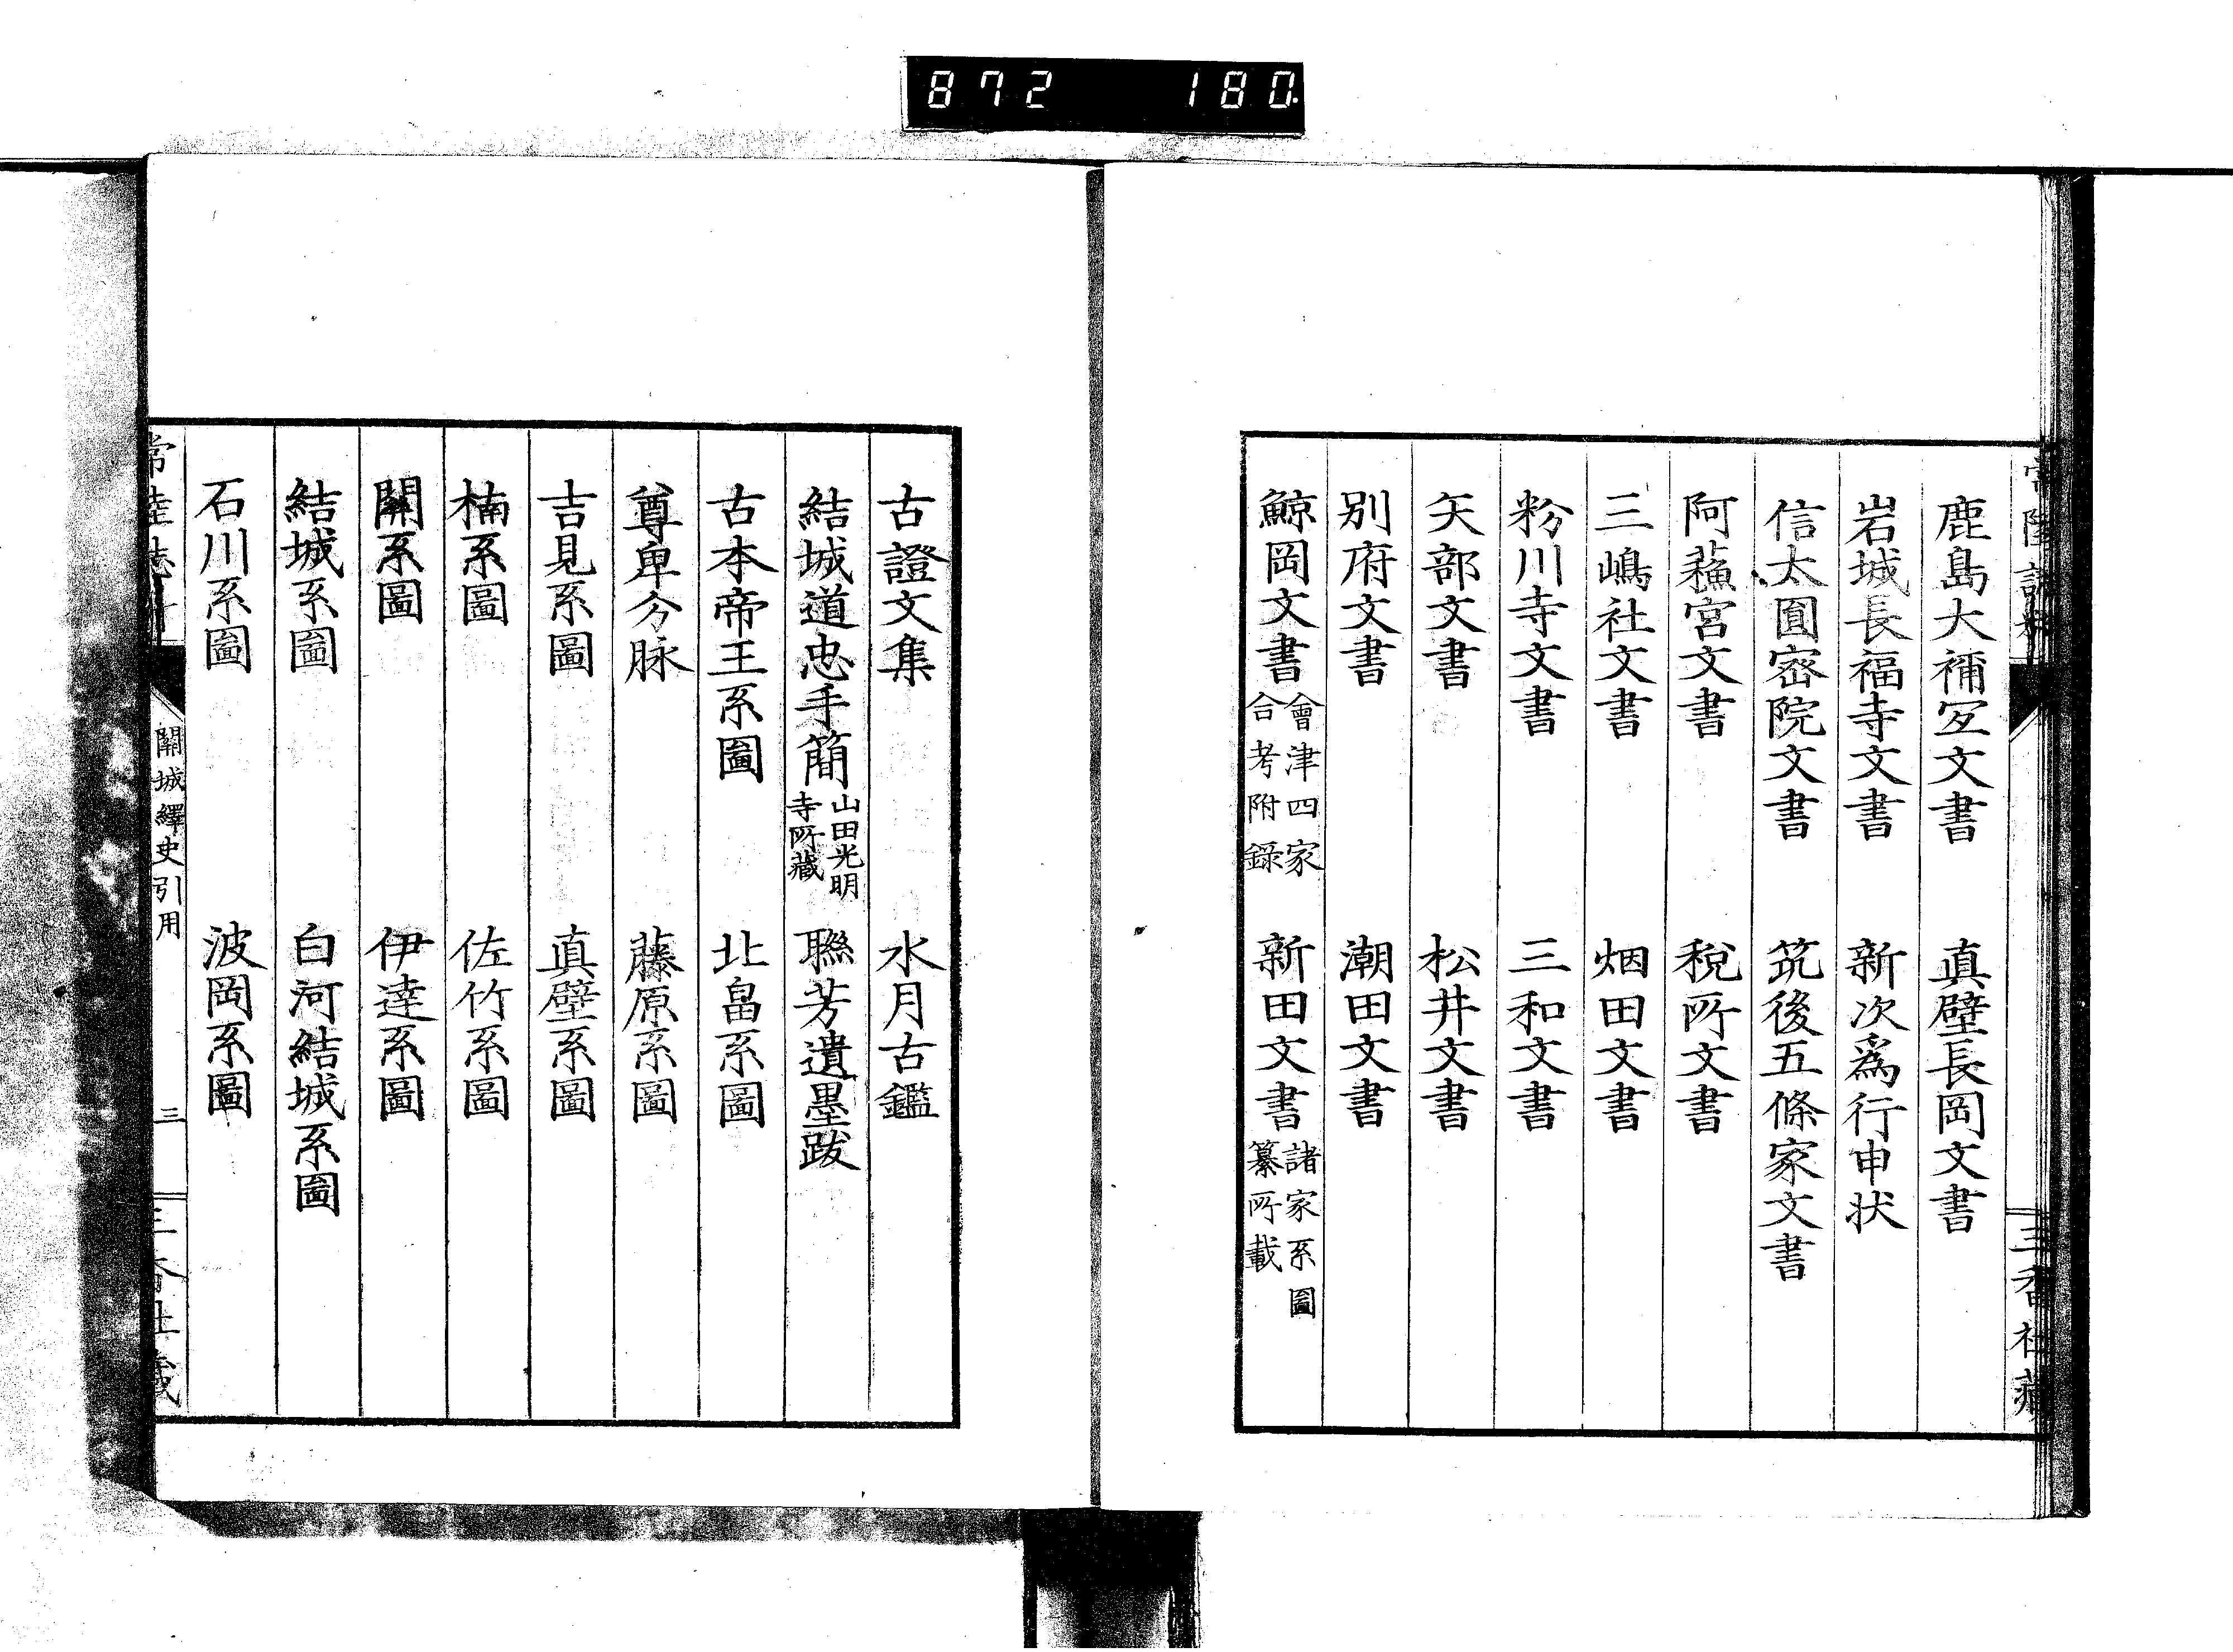 872 180
鹿島大補冝文書 真壁長岡文書
岩城長福寺文書 新次爲行申状
信太圓宻院文書 筑後五條家文書
阿蘓宮文書 税所文書
三嶋社文書 烟田文書
粉川寺文書 三和文書
矢部文書 松井文書
別府文書 潮田文書
鯨岡文書 會津四家合考附録 新田文書 諸家系圖纂所載
三香社藏
古證文集 水月古鑑
結城道忠手簡 山田光明寺所藏 聯芳遺墨跋
古本帝王系圖 北畠系圖
尊卑分脉 藤原系圖
吉見系圖 真壁系圖
楠系圖 佐竹系圖
關系圖 伊達系圖
結城系圖 白河結城系圖
石川系圖 波岡系圖
關城繹史引用 三